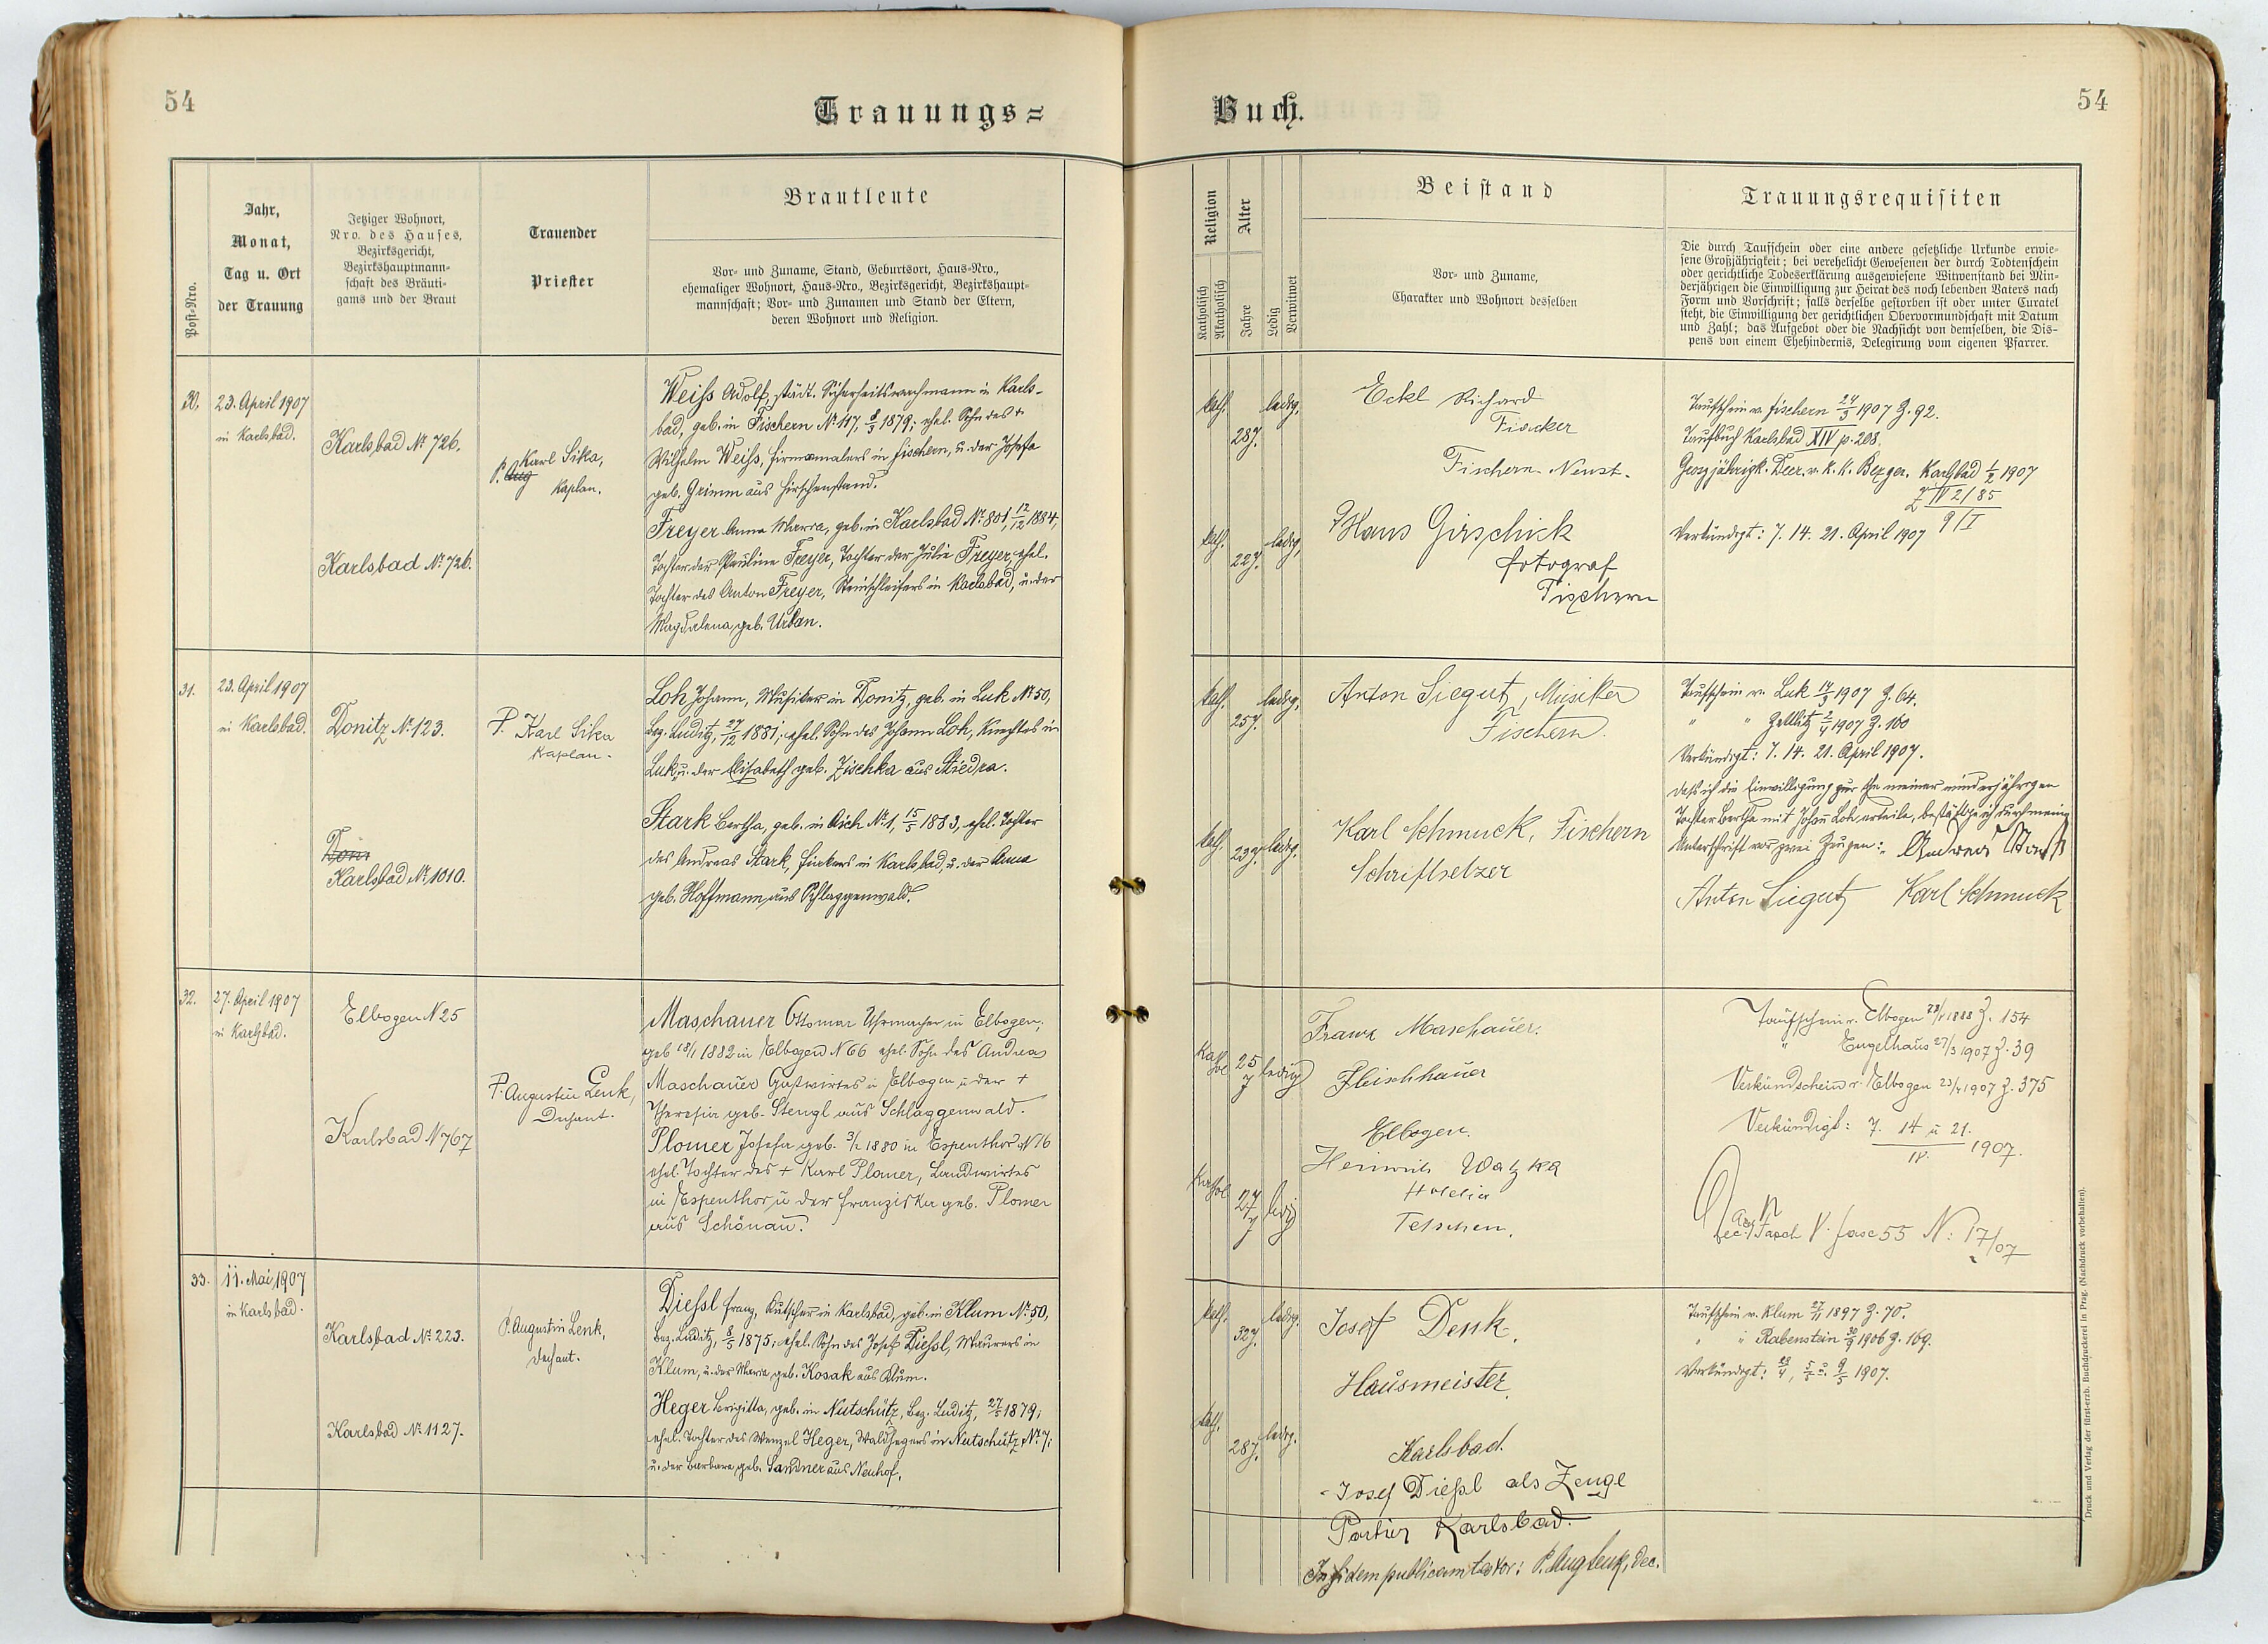 54
Trauungs=
Post=Nro.
Jahr,
Monat,
Tag u. Ort
der Trauung
Jetziger Wohnort,
Nro. des Hauses,
Bezirksgericht,
Bezirkshauptmann=
schaft des Bräuti=
gams und der Braut
Trauender
Priester
Brautleute
Vor= und Zuname, Stand, Geburtsort, Haus=Nro.,
ehemaliger Wohnort, Haus=Nro., Bezirksgericht, Bezirkshaupt=
mannschaft; Vor= und Zunamen und Stand der Eltern,
deren Wohnort und Religion.
30.
23. April 1907
in Karlsbad.
Karlsbad № 726.
Karlsbad № 726.
Karl Sika,
P. Aug
Kaplan.
Weiss Adolf, städt. Sicherheitswachmann in Karls-
bad, geb. in Fischern № 117, 8/3 1879; ehel. Sohn des +
Wilhelm Weiss, Firmamalers in Fischern, u. der Josefa
geb. Grimm aus Hirschenstand.
Freyer Anna Maria, geb. in Karlsbad № 801, 12/12 1884,
Tochter der Pauline Freyer, Tochter der Julie Freyer, ehel.
Tochter des Anton Freyer, Steinschleifers in Karlsbad, u. der
Magdalena, geb. Urban.
31.
23. April 1907
in Karlsbad.
Donitz № 123.
Doni
Karlsbad № 1010.
P. Karl Sika
Kaplan.
Loh Johann, Musiker in Donitz, geb. in Luk № 50,
Bez. Luditz, 27/12 1881; ehel. Sohn des Johann Loh, Knechtes in
Luk, u. der Elisabeth geb. Zischka aus Stiedra.
Stark Bertha, geb. in Aich № 1, 15/5 1883, ehel. Tochter
des Andreas Stark, in Karlsbad, u. der Anna
geb. Hoffmann, aus Schlaggenwald.
32.
27. April 1907
in Karlsbad.
Elbogen N 25
Karlsbad N 767
P. Augustin Lenk,
Dechant.
Maschauer Ottomar Uhrmacher in Elbogen,
geb 18/1 1882 in Elbogen N 66 ehel. Sohn des Andreas
Maschauer Gastwirtes in Elbogen u der +
Theresia geb. Stengl aus Schlaggenwald.
Plomer Josefa geb. 3/2 1880 in Espenthor N 16
ehel. Tochter des + Karl Plomer, Landwirtes
in Espenthor u der Franziska geb. Plomer
aus Schönau.
33.
11. Mai 1907
in Karlsbad.
Karlsbad № 223.
Karlsbad № 1127.
P. Augustin Lenk,
Dechant.
Diessl Franz, Kutscher in Karlsbad, geb. in Klum № 50,
Bez. Luditz, 8/5 1875; ehel. Sohn des Josef Diessl, Maurers in
Klum, u. der Maria, geb. Kosak aus Klum.
Heger Brigitta, geb. in Nutschütz, Bez. Luditz, 27/5 1879;
ehel. Tochter des Wenzel Heger, Waldhegers in Nutschütz № 7;
u. der Barbara, geb. Sandner aus Neuhof.
Buch.
54
Religion
Katholisch
Akatholisch
Alter
Jahre
Ledig
Verwitwet
Beistand
Vor= und Zuname,
Charakter und Wohnort desselben
Trauungsrequisiten
Die durch Taufschein oder eine andere gesetzliche Urkunde erwie=
sene Großjährigkeit; bei verehelicht Gewesenen der durch Todtenschein
oder gerichtliche Todeserklärung ausgewiesene Witwenstand bei Min=
derjährigen die Einwilligung zur Heirat des noch lebenden Vaters nach
Form und Vorschrift; falls derselbe gestorben ist oder unter Curatel
steht, die Einwilligung der gerichtlichen Obervormundschaft mit Datum
und Zahl; das Aufgebot oder die Nachsicht von demselben, die Dis=
pens von einem Ehehindernis, Delegirung vom eigenen Pfarrer.
kath.
28 J.
ledig.
kath.
22 J.
ledig,
Eckl Richard
Fiacker
Fischern - Neust.
Hans Girschick
fotograf
Fischern
Taufschein v. Fischern 24/3 1907 Z. 92.
Taufbuch Karlsbad XIV p. 208.
Grossjährigk. Decr. v. k. k. Bezger. Karlsbad 1/2 1907
Z IV 2/85
9/I
Verkündigt: 7. 14. 21. April 1907
kath.
25 J.
ledig.
kath.
23 J.
ledig.
Anton Siegut, Musiker
Fischern.
Karl Schmuck, Fischern
Schriftsetzer
Taufschein v. Luk 14/3 1907 Z. 64.
" " Zettlitz 2/4 1907 Z. 160
Verkündigt: 7. 14. 21. April 1907.
Dass ich die Einwilligung zur Ehe meiner minderjährigen
Tochter Bertha mit Johann Loh erteile, bestättige ich durch meine
Unterschrift vor zwei Zeugen: Andreas Stark
Anton Siegut Karl Schmuck
Kathol
25 J
ledig
Kathol
27 J
ledig
Franz Maschauer.
Fleischhauer
Elbogen.
Heinrich Watzka
Hotelier
Tetschen.
Taufschein v. Elbogen 28/5 1888 Z. 154
" Engelhaus 27/3 1907 Z. 39
Verkündschein v. Elbogen 23/4 1907 Z. 375
Verkündigt: 7. 14 u 21.
IV. 1907.
V. fasc 55 N: 17/07
kath.
32 J.
ledig.
kath.
28 J.
ledig.
Josef Denk,
Hausmeister,
Karlsbad.
Josef Diessl als Zeuge
Portier Karlsbad.
In fidem publicam testor: P. Aug Lenk, Dec.
Taufschein v. Klum 27/1 1897 Z. 70.
" " Rabenstein 30/9 1906 Z. 169.
Verkündigt: 28/4, 5/5 u. 9/5 1907.
Druck und Verlag der fürst-erzb. Buchdruckerei in Prag. (Nachdruck vorbehalten).